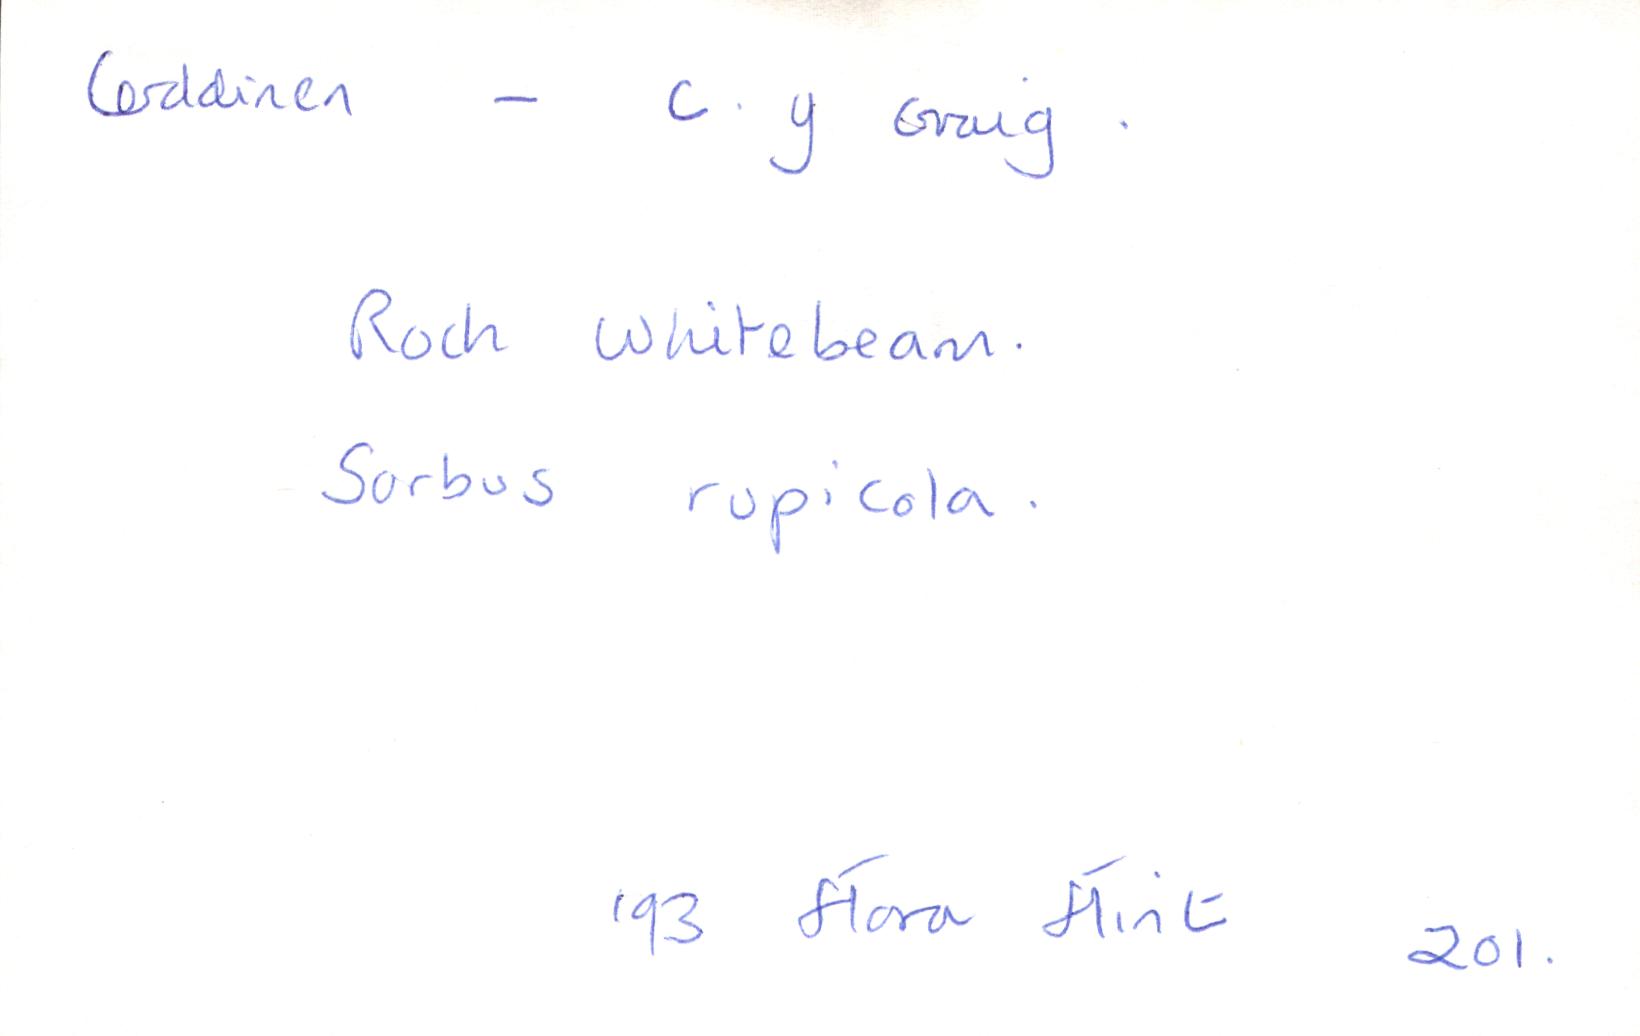 Cerddinen - C. y Graig.
Rock Whitebeam.
Sorbus rupicola.
'93 Flora Flint 201.